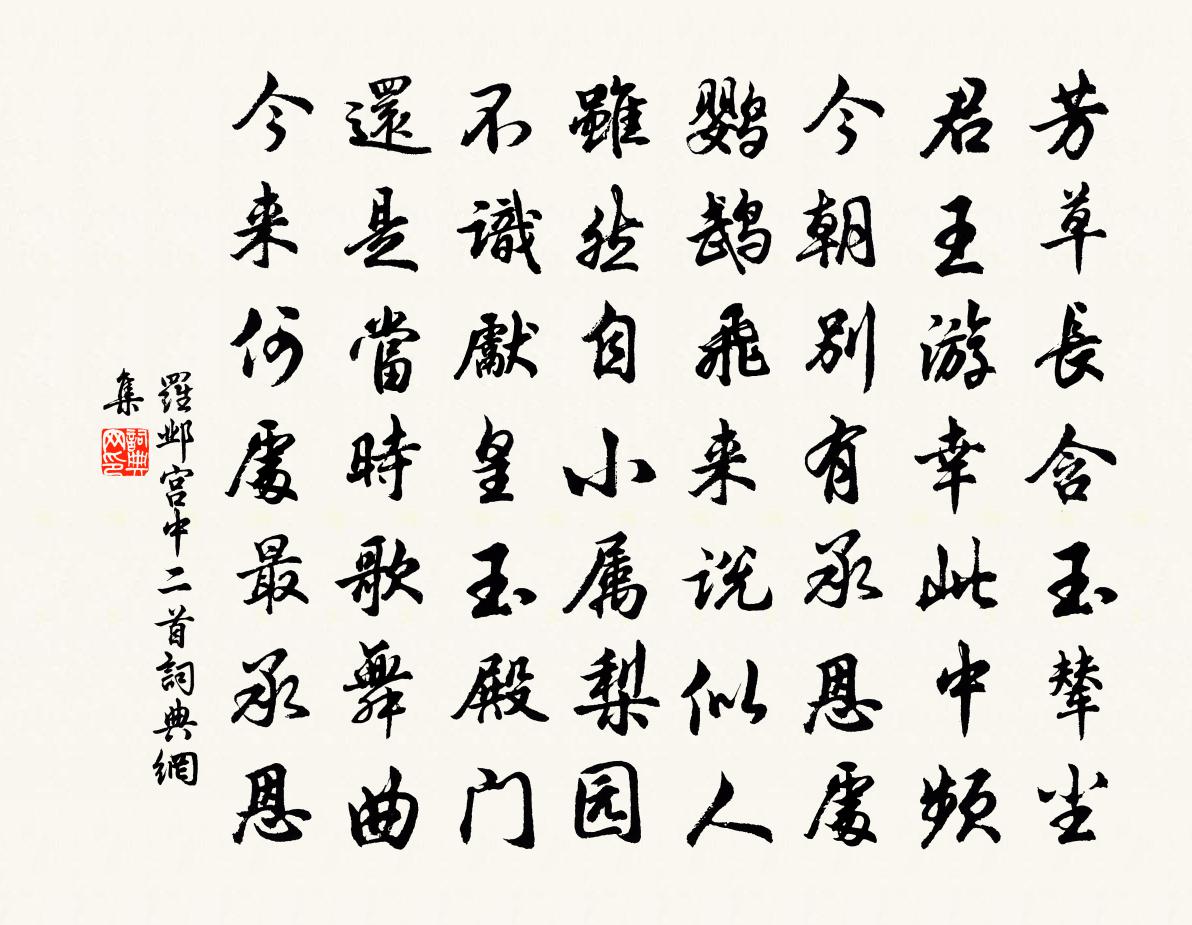 芳草長含玉輦塵
君王游幸此中頻
今朝別有承恩處
鸚鵡飛来说似人
雖然自小属梨园
不識獻皇玉殿门
還是當時歌舞曲
今来何處最承恩
羅邺宫中二首詞典網
集
詞典
网印